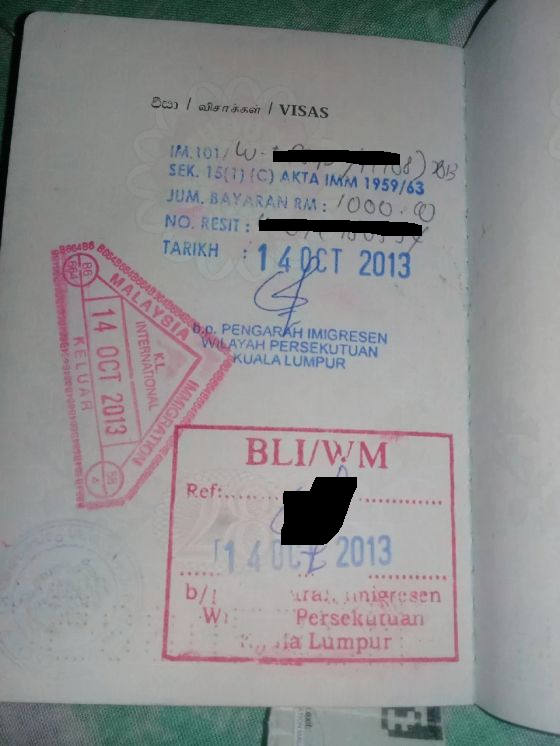 වීසා / விசாக்கள் / VISAS
IM.101/ W-
SEK. 15(1) (C) AKTA IMM 1959/63
JUM. BAYARAN RM : 1000.00
NO. RESIT :
TARIKH : 14 OCT 2013
b.p. PENGARAH IMIGRESEN
WILAYAH PERSEKUTUAN
KUALA LUMPUR
MALAYSIA
IMMIGRATION
K.L
INTERNATIONAL
14 OCT 2013
KELUAR
BLI/WM
Ref:
14 OCT 2013
b/ Imigresen
Persekutuan
Lumpur